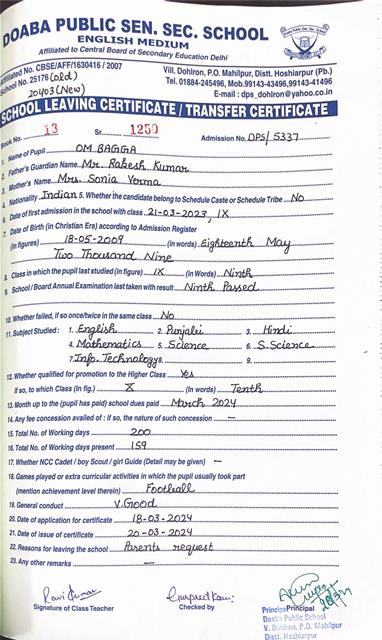 DOABA PUBLIC SEN. SEC. SCHOOL
ENGLISH MEDIUM
Affiliated to Central Board of Secondary Education Delhi
Affiliated No. CBSE/AFF/1630416 / 2007
School No. 25176 (old)
20403 (New)
Vill. Dohlron, P.O. Mahilpur, Distt. Hoshiarpur (Pb.)
Tel. 01884-245496, Mob.99143-43296,99143-41496
E-mail : dps_dohlron@yahoo.co.in
SCHOOL LEAVING CERTIFICATE / TRANSFER CERTIFICATE
Book No. 13 Sr. 1250 Admission No. DPS/5337
1. Name of Pupil OM BAGGA
2. Father's Guardian Name Mr. Rakesh Kumar
3. Mother's Name Mrs. Sonia Verma
4. Nationality Indian 5. Whether the candidate belong to Schedule Caste or Schedule Tribe No
6. Date of first admission in the school with class 21-03-2023, IX
7. Date of Birth (in Christian Era) according to Admission Register
(in figures) 18-05-2009 (in words) Eighteenth May
Two Thousand Nine
8. Class in which the pupil last studied (in figure) IX (in Words) Ninth
9. School / Board Annual Examination last taken with result Ninth Passed
10. Whether failed, if so once/twice in the same class No
11. Subject Studied : 1. English 2. Punjabi 3. Hindi
4. Mathematics 5. Science 6. S.Science
7. Info. Technology 8. 9.
12. Whether qualified for promotion to the Higher Class Yes
if so, to which Class (in fig.) X (in Words) Tenth
13. Month up to the (pupil has paid) school dues paid March 2024
14. Any fee concession availed of : if so, the nature of such concession —
15. Total No. of Working days 200
16. Total No. of Working days present 159
17. Whether NCC Cadet / boy Scout / girl Guide (Detail may be given) —
18. Games played or extra curricular activities in which the pupil usually took part
(mention achievement level therein) Football
19. General conduct V.Good
20. Date of application for certificate 18-03-2024
21. Date of issue of certificate 20-03-2024
22. Reasons for leaving the school Parents request
23. Any other remarks —
Ravi Kumar
Gurpreet Kaur
Signature of Class Teacher
Checked by
Principal
Principal
Doaba Public School
V. Dohlron, P.O. Mahilpur
Distt. Hoshiarpur